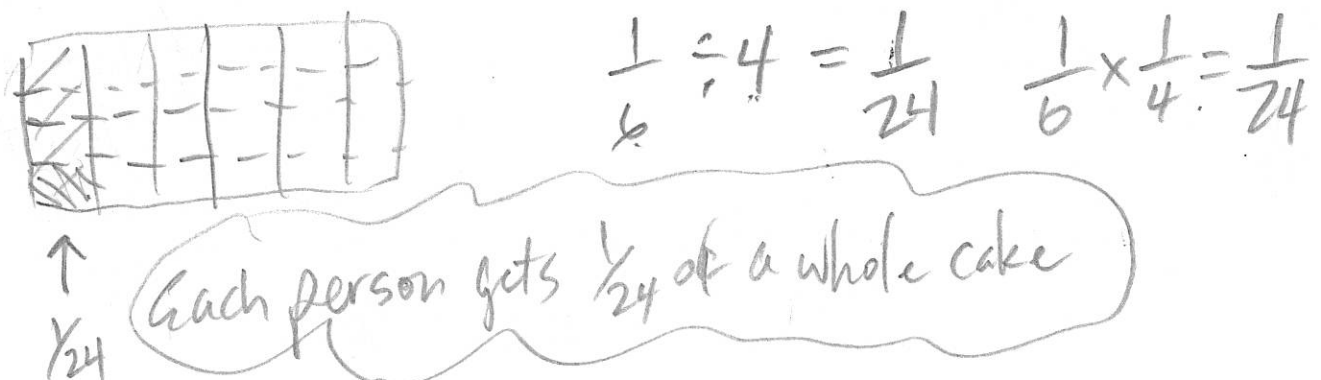 1/6 ÷ 4 = 1/24 1/6 × 1/4 = 1/24
Each person gets 1/24 of a whole cake
1/24